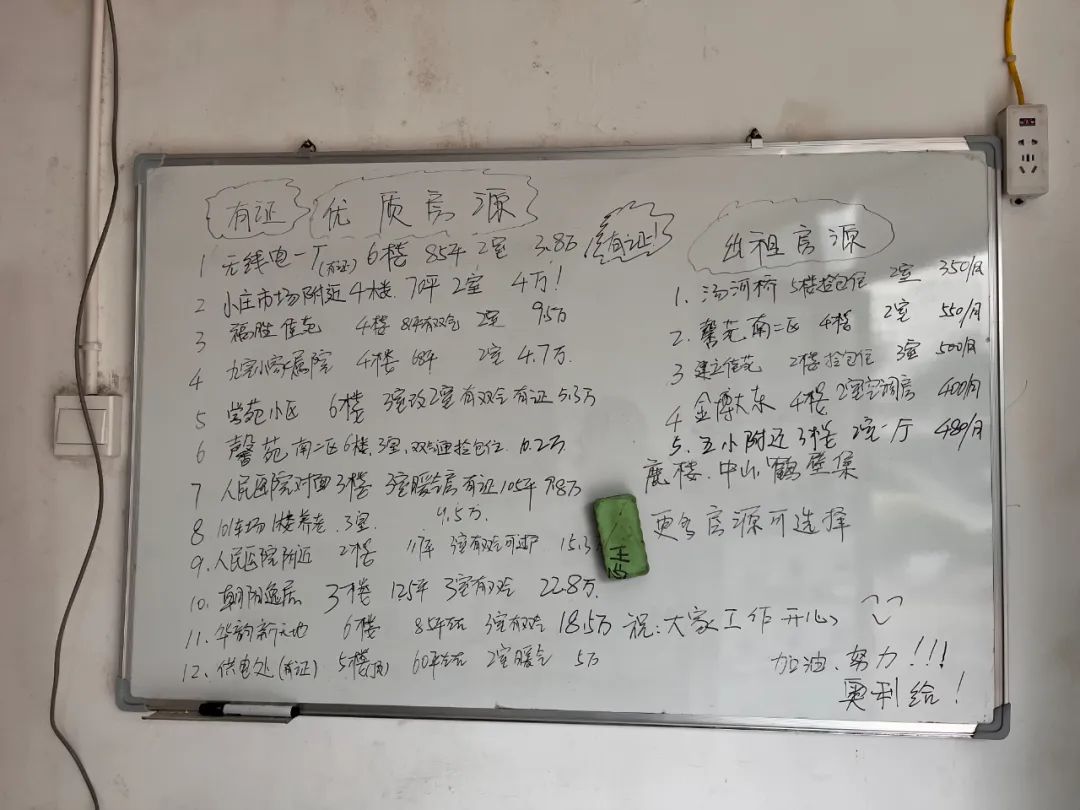 有证 优质房源
1 无线电一厂(有证) 6楼 85平 2室 3.8万 有证!
2 小庄市场附近 4楼. 70平 2室 4万!
3 福胜佳苑 4楼 有双气 2室 9.5万
4 家属院 4楼 68平 2室 4.7万.
5 学苑小区 6楼 3室改2室有双气 有证 5.3万
6 馨苑南二区 6楼. 3室. 双气 拎包住. 10.2万
7 人民医院对面 3楼 3室暖气房 有证 105平 7.8万
8 101车场 1楼养老. 3室. 4.5万.
9. 人民医院附近 2楼 3室有双气可 15.3
10. 朝阳逸居 3楼 125平 3室有双气 22.8万.
11. 华韵新天地 6楼 85平左右 3室有双气 18.5万
12. 供电处(有证) 5楼(顶) 60平左右 2室暖气 5万
出租房源
1. 汤河桥 5楼拎包住 2室 350/月
2. 馨苑南二区 4楼 2室 550/月
3 建立佳苑 2楼 拎包住 3室 500/月
4 金博大东 4楼 2室空调房 400/月
5. 五小附近 3楼 2室一厅 480/月
鹿楼. 中山. 鹤壁集
更多房源可选择
祝:大家工作开心
加油. 努力!!!
奥利给!